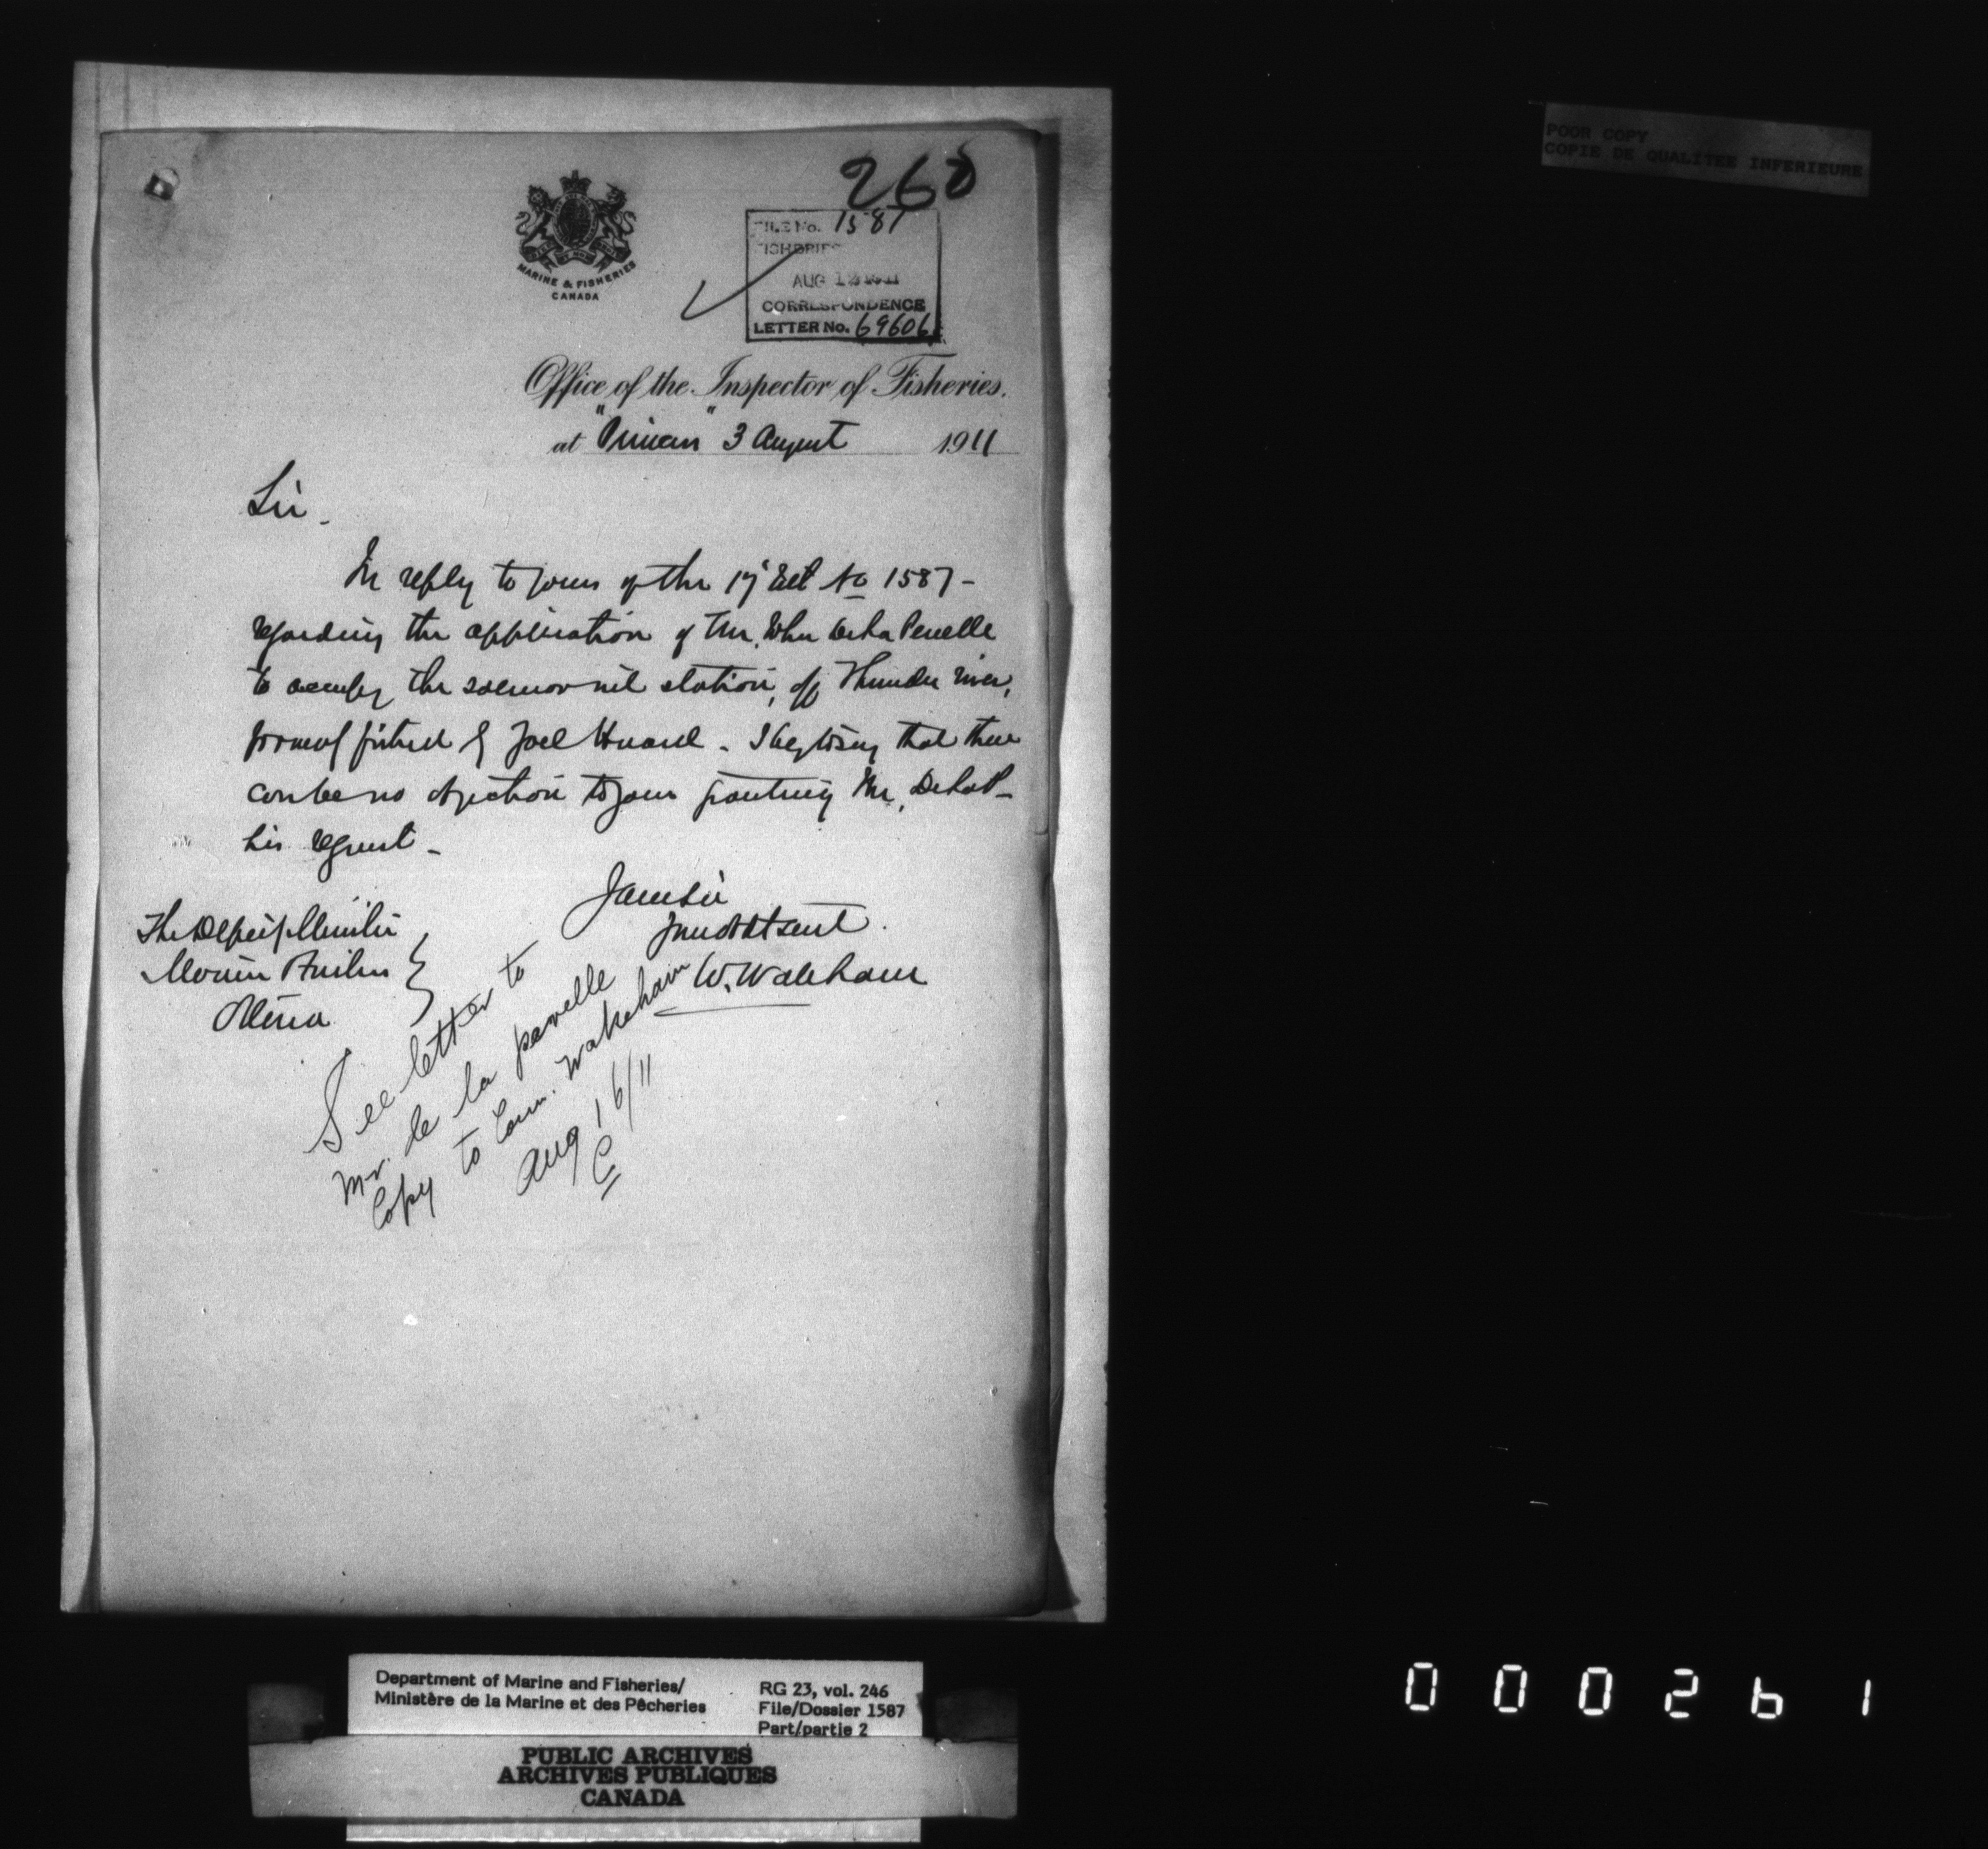 POOR COPY
COPIE DE QUALITEE INFERIEURE
268
MARINE & FISHERIES
CANADA
FILE No. 1587
FISHERIES
AUG 12 1911
CORRESPONDENCE
LETTER No. 69606
Office of the Inspector of Fisheries.
at "Princess" 3 August 1911
Sir -
In reply to yours of the 17 No 1587 -
regarding the application of Mr. John De La Perrelle
to occupy the salmon net station, off Thunder river,
formerly fished by Joel Huard - I beg to say that there
can be no objection to your granting Mr. De La P-
his request -
I am Sir
Your obdt servt.
W. Wakeham
The Deputy Minister
Marine & Fisheries
Ottawa
See letter to
Mr. de la perrelle
Copy to Com. Wakeham
Aug 16/11
C
Department of Marine and Fisheries/
Ministère de la Marine et des Pêcheries
RG 23, vol. 246
File/Dossier 1587
Part/partie 2
PUBLIC ARCHIVES
ARCHIVES PUBLIQUES
CANADA
000261